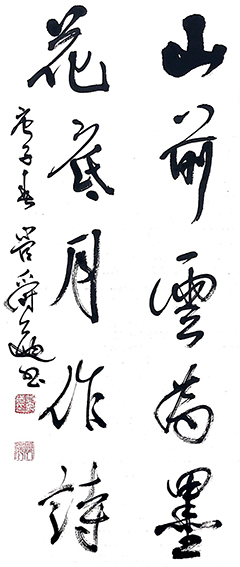 山前雲為墨
花底月作詩
庚子春